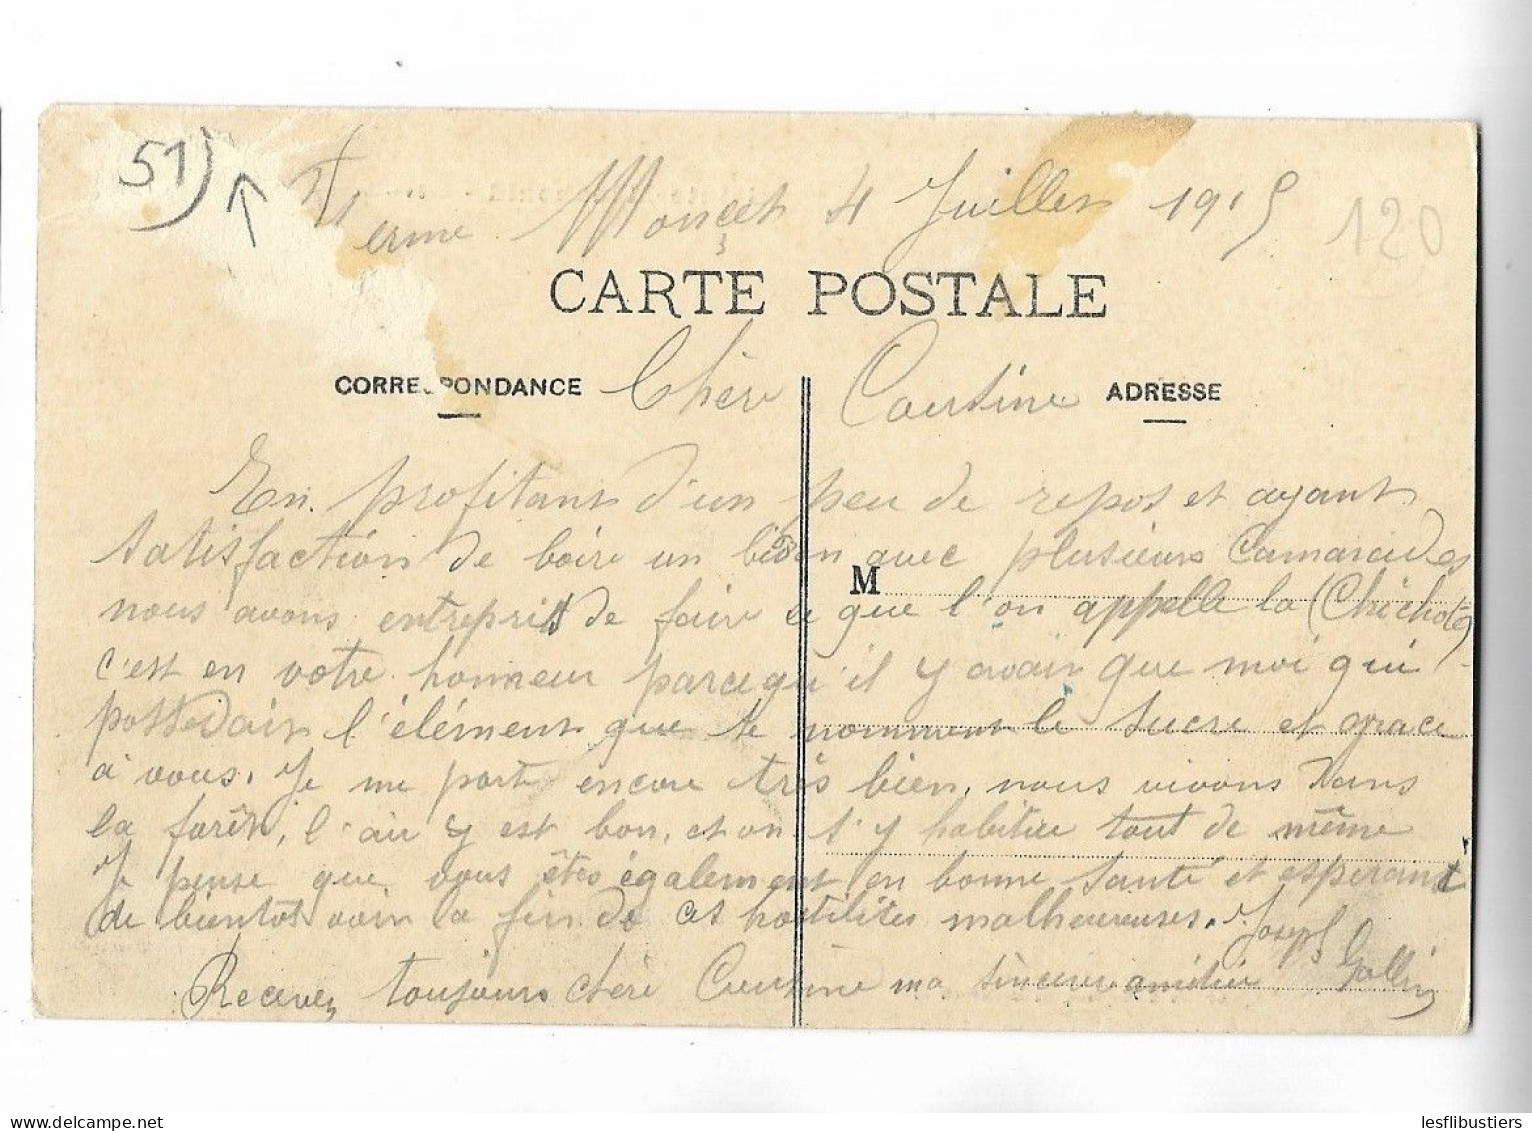 51)
Ferme Monçet 4 Juillet 1915
120
CARTE POSTALE
CORRESPONDANCE
ADRESSE
Chère Cousine
En profitant d'un peu de repos et ayant
satisfaction de boire un bidon avec plusieurs Camarades
M
nous avons entrepris de faire ce que l'on appelle la (Chichote)
c'est en votre honneur parcequ'il y avait que moi qui
possedait l'élément que se nomment le sucre et grace
à vous. Je me porte encore très bien, nous vivons dans
la forêt, l'air y est bon, et on s'y habitue tout de même
Je pense que vous êtes également en bonne santé et esperant
de bientôt voir la fin de ces hostilités malheureuses. Joseph
Recevez toujours chère Cousine ma sincere amitié Gallin
lesflibustiers